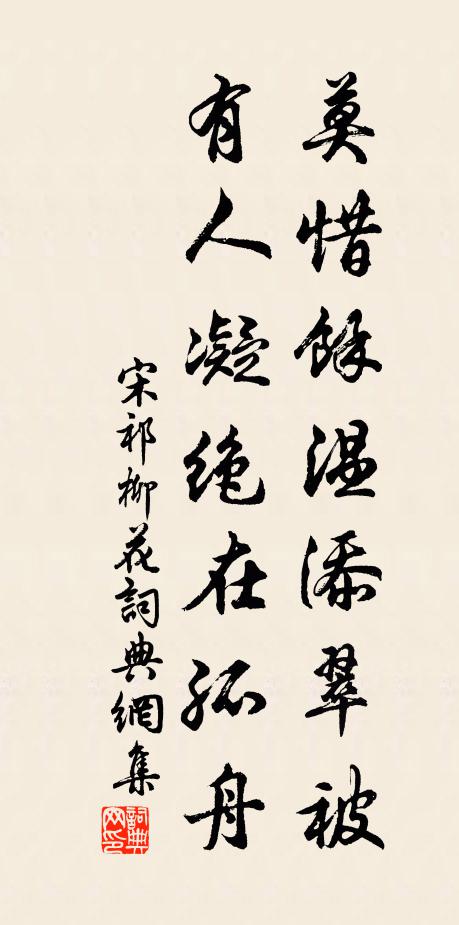 莫惜餘温添翠被
有人凝絶在孤舟
宋祁柳花詞典網集
詞典網印